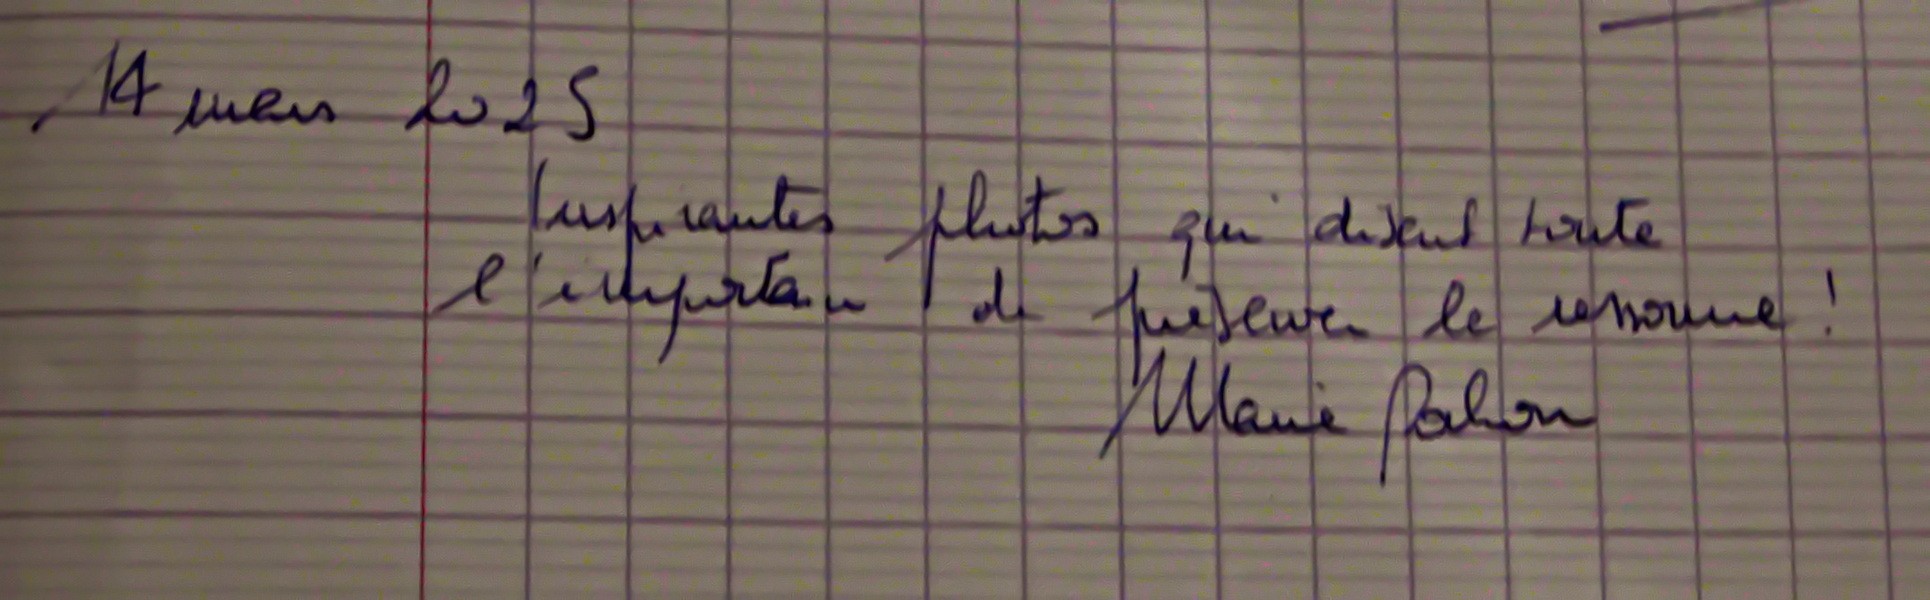 14 mars 2025
Inspirantes photos qui disent toute
l'importance de préserver la ressource !
Marie